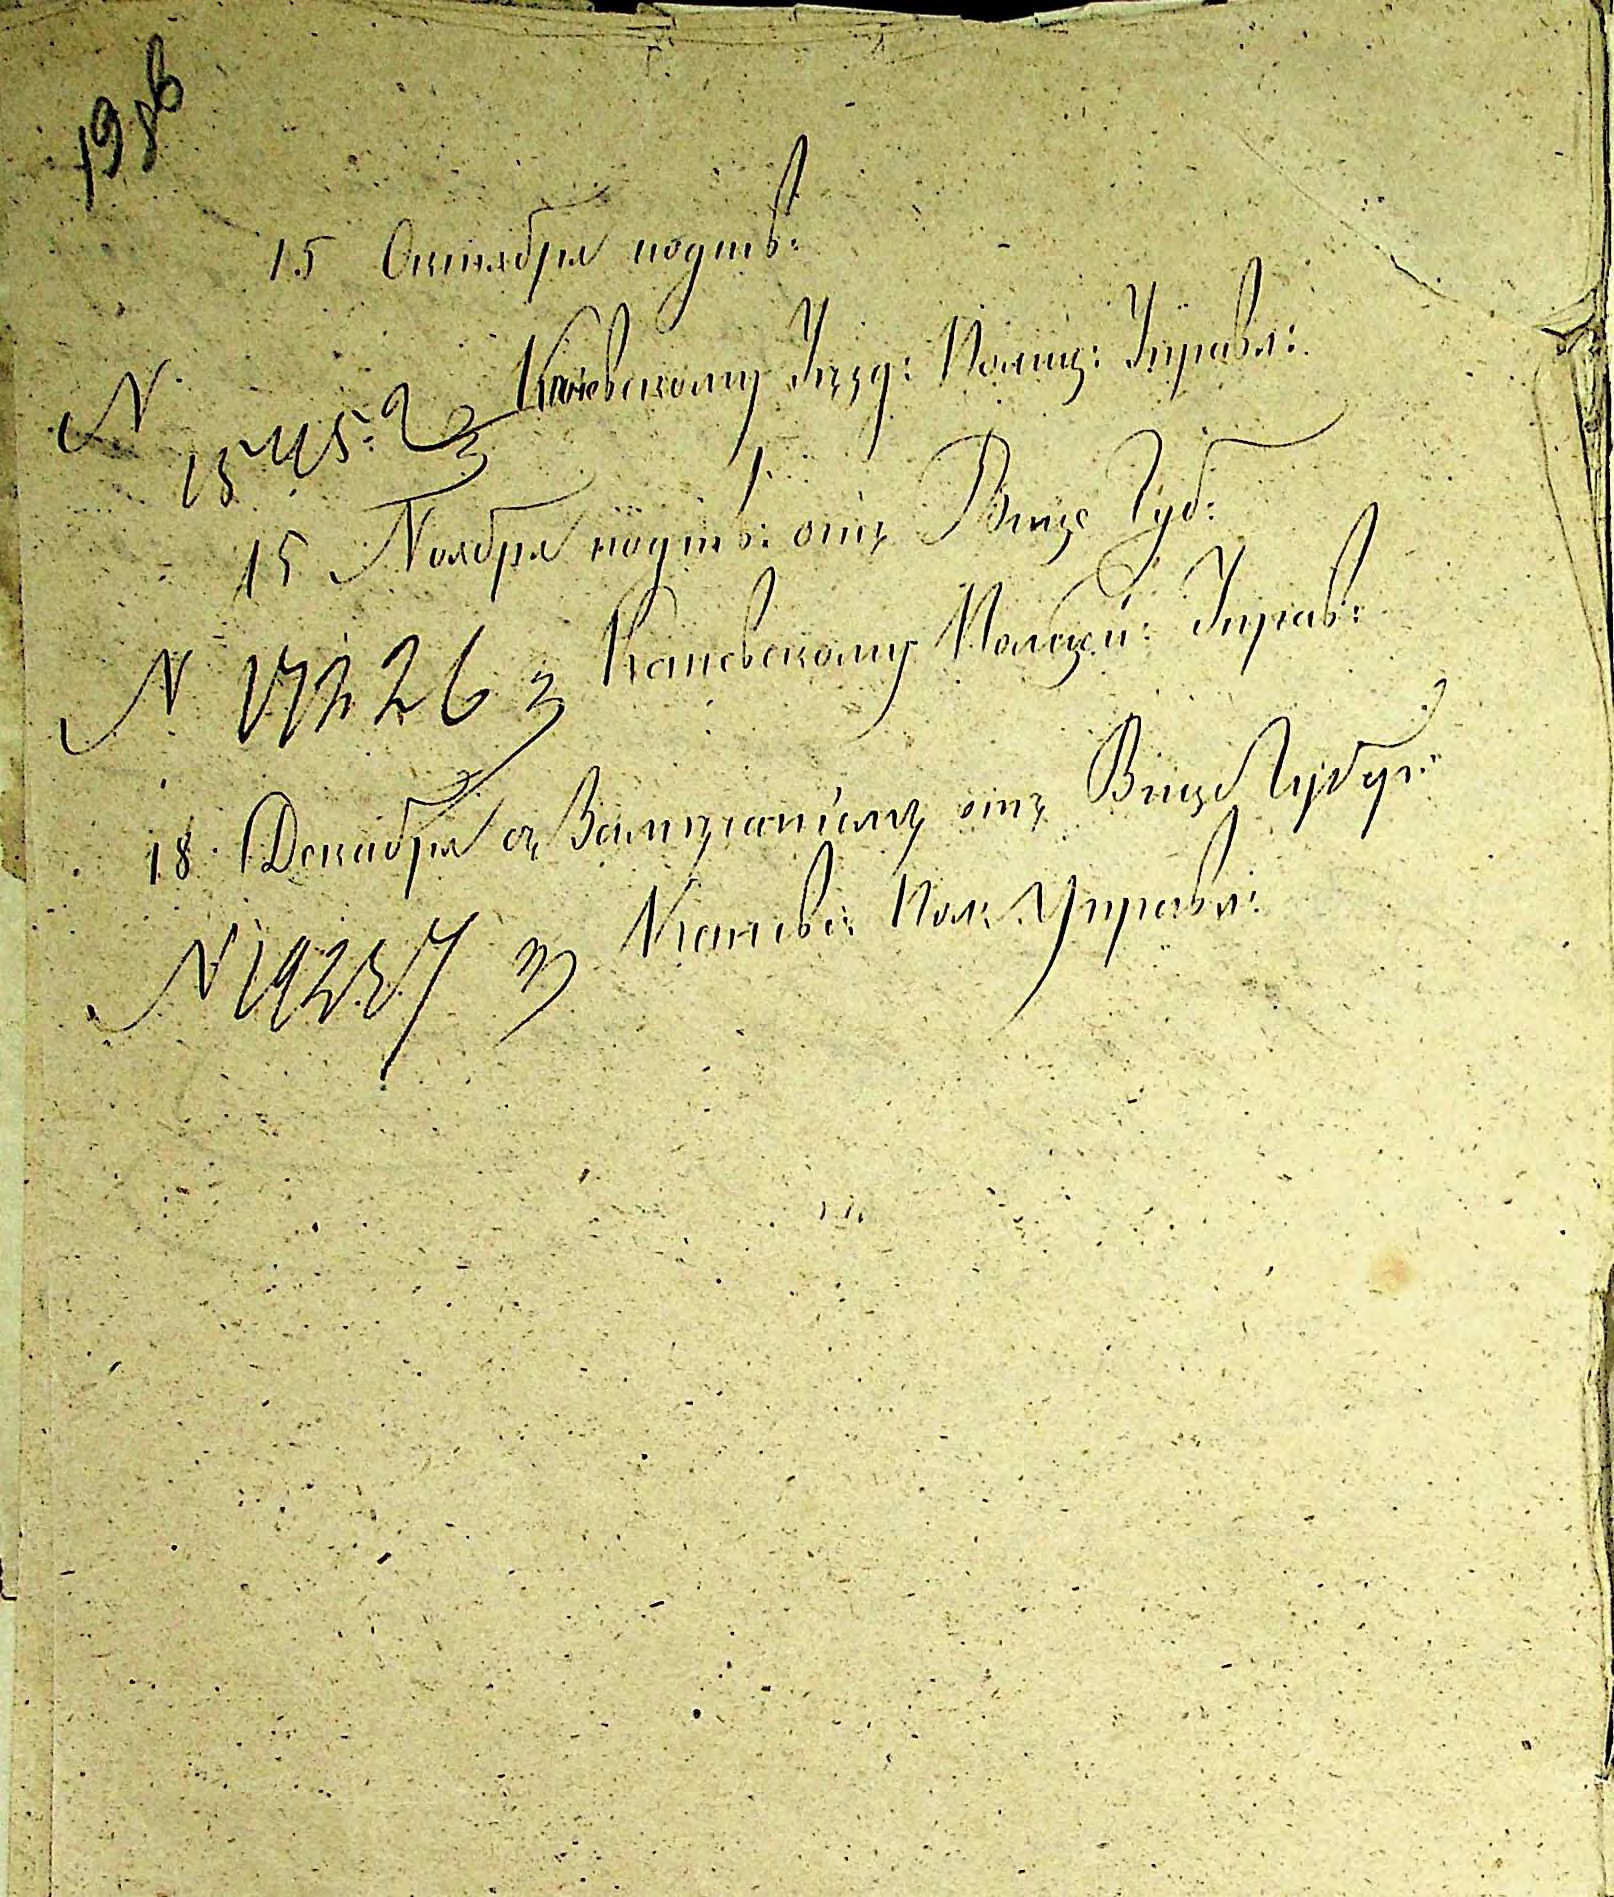 198б
15 Октября подтв:
Каневскому Уѣзд: Полиц: Управл:
№ 15452
15 Ноября подтв: отъ Вице Губ:
№ 17226 Каневскому Полицей: Управ:
18 Декабря съ Замѣчаніемъ отъ Вице Губер:
№ 19237 Каневс: Пол: Управл: